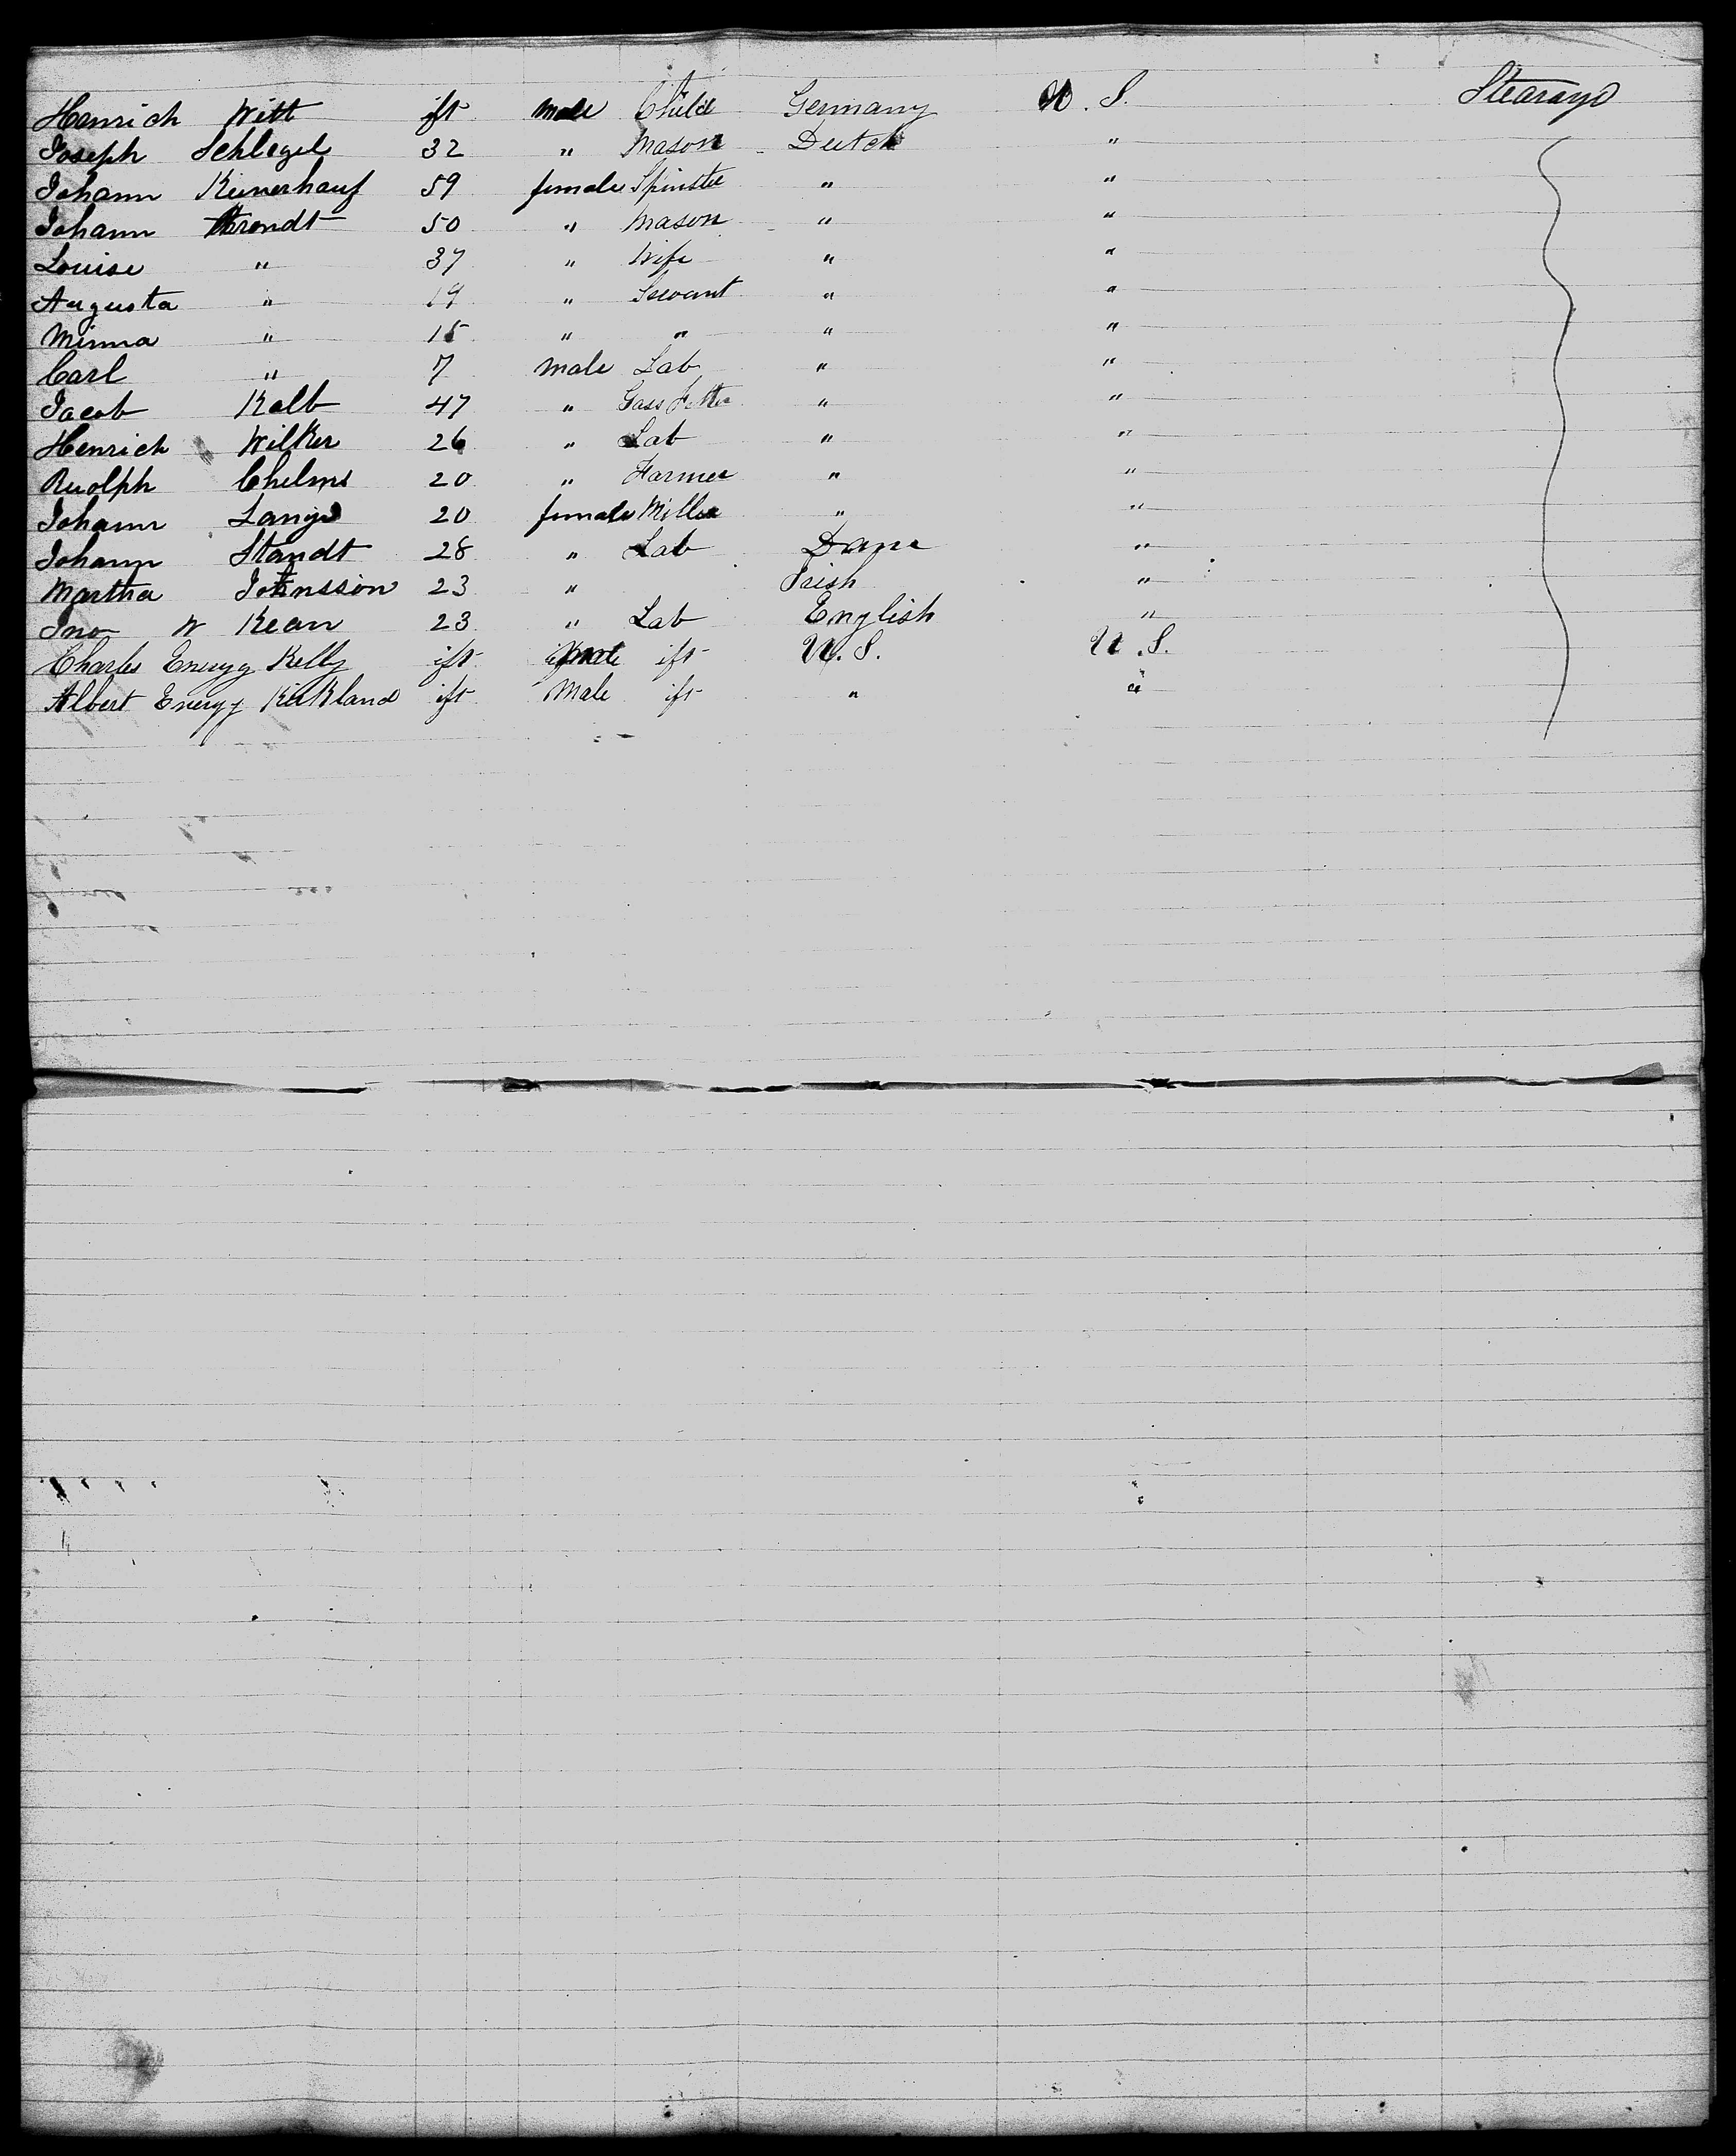 Henrich Witt ift male Child Germany U.S. Stearayd
Joseph Schlegel 32 " Mason Dutch "
Johann 59 female Spinster " "
Johann Arendt 50 " Mason " "
Louise " 37 " Wife " "
Augusta " 19 " Servant " "
Minna " 15 " " " "
Carl " 7 male Lab " "
Jacob Kalb 47 " Gass Fitter " "
Henrich Wilker 26 " Lab " "
Ruolph Chelms 20 " Farmer " "
Johann Lange 20 female Miller " "
Johann Standt 28 " Lab Dane "
Martha Johnsson 23 " Irish "
Jno W Kean 23 " Lab English "
Charles Energy Kelly ift male ift U.S. U.S.
Albert Energy Kirkland ift Male ift " "